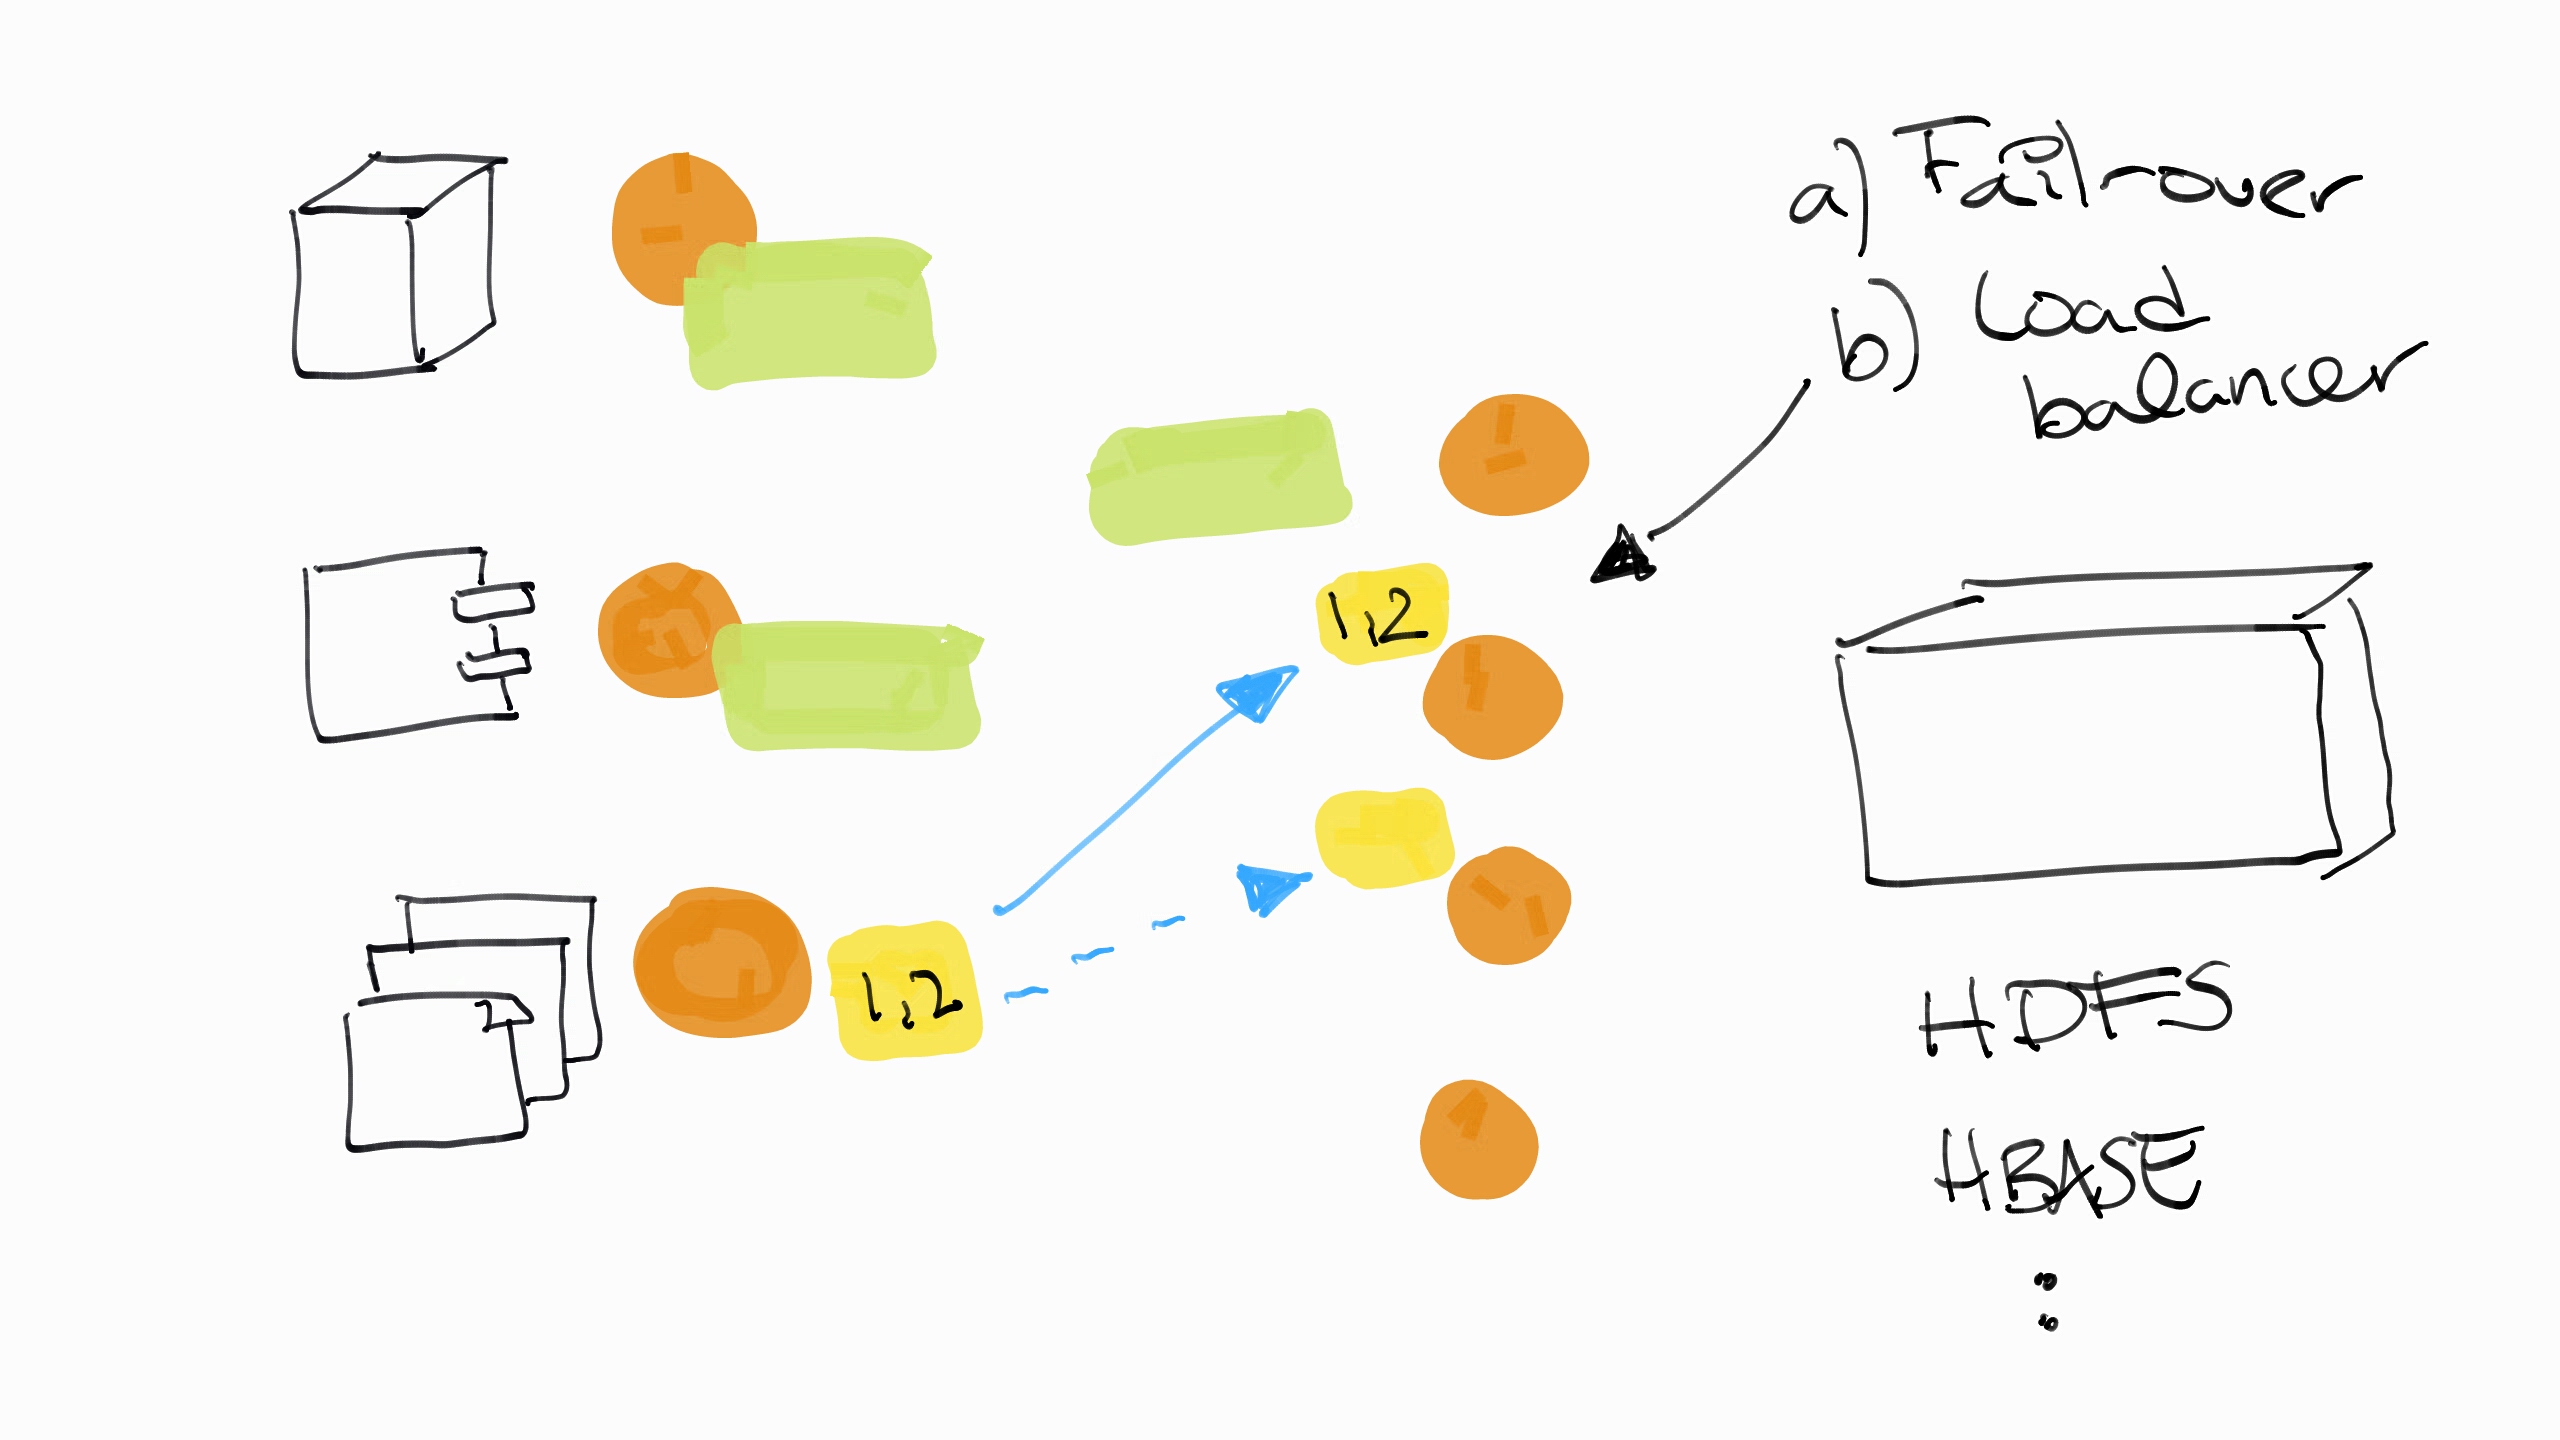 a) Fail-over
b) Load
balancer
1,2
1,2
HDFS
HBASE
: